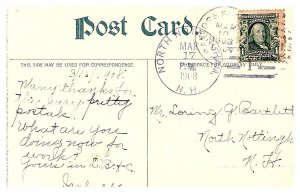 Post Card.
THIS SIDE MAY BE USED FOR CORRESPONDENCE.
FOR ADDRESS ONLY
NORTH
MAR
17
1908
N.H.
3/17/'08.
Many thanks for
the very pretty
postals.
What are you
doing now for
work?
Yours in
Mr. Loring G. Bartlett
North Nottingham
N.H.